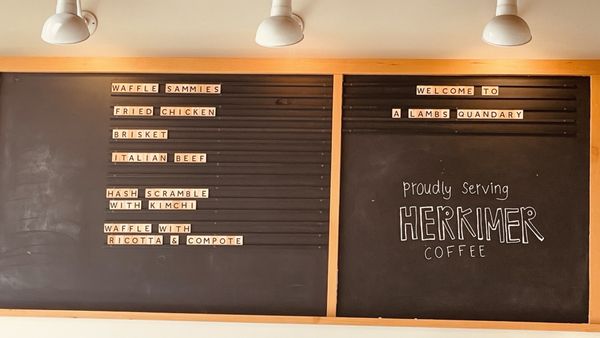 WAFFLE SAMMIES
FRIED CHICKEN
BRISKET
ITALIAN BEEF
HASH SCRAMBLE
WITH KIMCHI
WAFFLE WITH
RICOTTA & COMPOTE
WELCOME TO
A LAMBS QUANDARY
Proudly Serving
HERKIMER
COFFEE